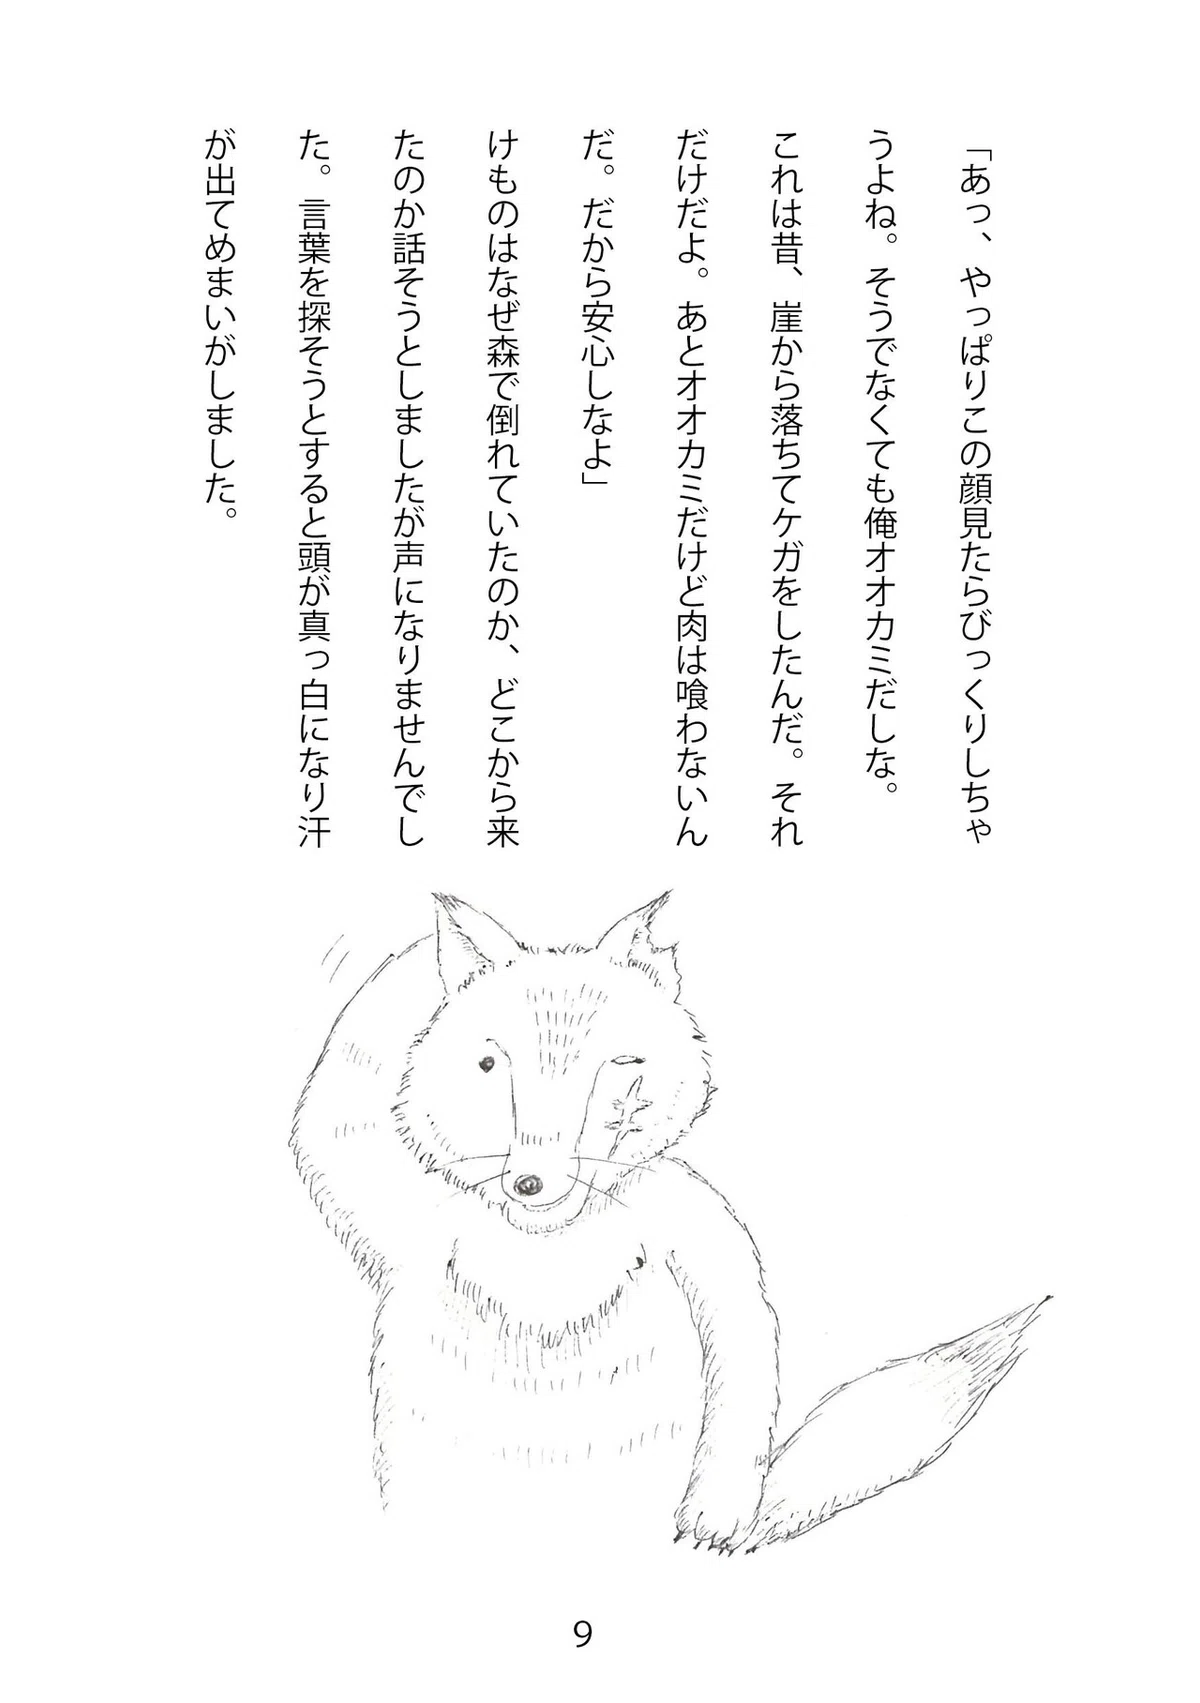 「あっ、やっぱりこの顔見たらびっくりしちゃ
うよね。そうでなくても俺オオカミだしな。
これは昔、崖から落ちてケガをしたんだ。それ
だけだよ。あとオオカミだけど肉は喰わないん
だ。だから安心しなよ」
けものはなぜ森で倒れていたのか、どこから来
たのか話そうとしましたが声になりませんでし
た。言葉を探そうとすると頭が真っ白になり汗
が出てめまいがしました。
9